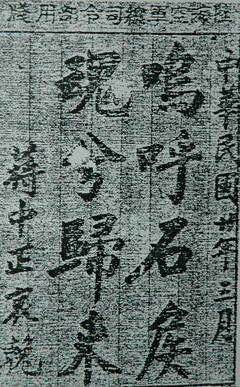 陸海空軍總司令部用牋
中華民國廿年三月
嗚呼石侯
魂兮歸來
蔣中正哀輓